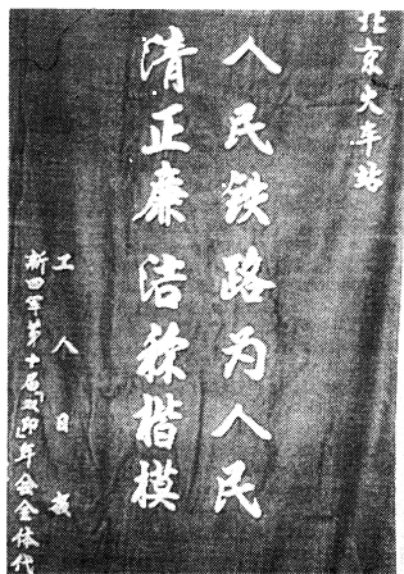 北京火车站
人民铁路为人民
清正廉洁称楷模
工人日报
新四军第十届「双印」年会全体代